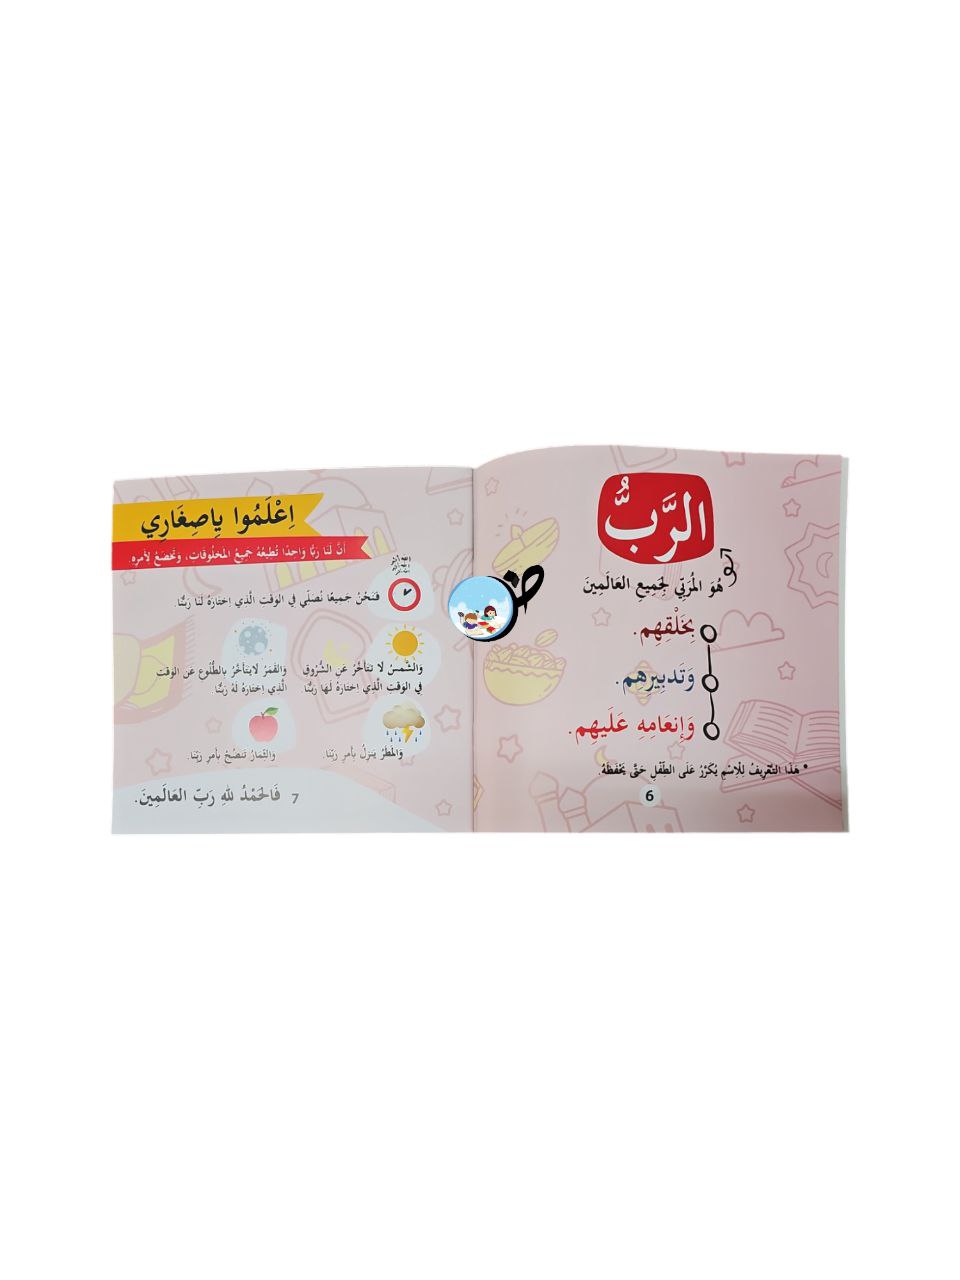 الرَّبُّ
هُوَ المُرَبِّي لِجَمِيعِ العَالَمِينَ
بِخَلْقِهِم.
وَتَدبِيرِهِم.
وَإنعَامِهِ عَلَيهِم.
• هَذَا التَّعْرِيفُ لِلْاِسْمِ يُكَرَّرُ عَلَى الطِّفْلِ حَتَّى يَحْفَظَهُ.
6
اِعْلَمُوا يِاصِغَارِي
أَنَّ لَنَا رَبًّا وَاحِدًا تُطِيعُهُ جَمِيعُ المَخلُوقَاتِ، وَتَخضَعُ لِأمرِهِ.
فَنَحْنُ جَمِيعًا نُصَلِّي فِي الوَقتِ الَّذِي اِختَارَهُ لَنَا رَبُّنَا.
وَالشَّمسُ لَا تَتَأخَّرُ عَنِ الشُّرُوقِ
فِي الوَقتِ الَّذِي اِختَارَهُ لَهَا رَبُّنَا.
وَالقَمَرُ لَايَتَأخَّرُ بِالطُّلُوعِ عَنِ الوَقتِ
الَّذِي اِختَارَهُ لَهُ رَبُّنَا.
وَالمَطَرُ يَنزِلُ بِأمرِ رَبِّنَا.
وَالثِّمَارُ تَنضُجُ بِأمرِ رَبِّنَا.
فَالحَمْدُ للهِ رَبِّ العَالَمِينَ.
7